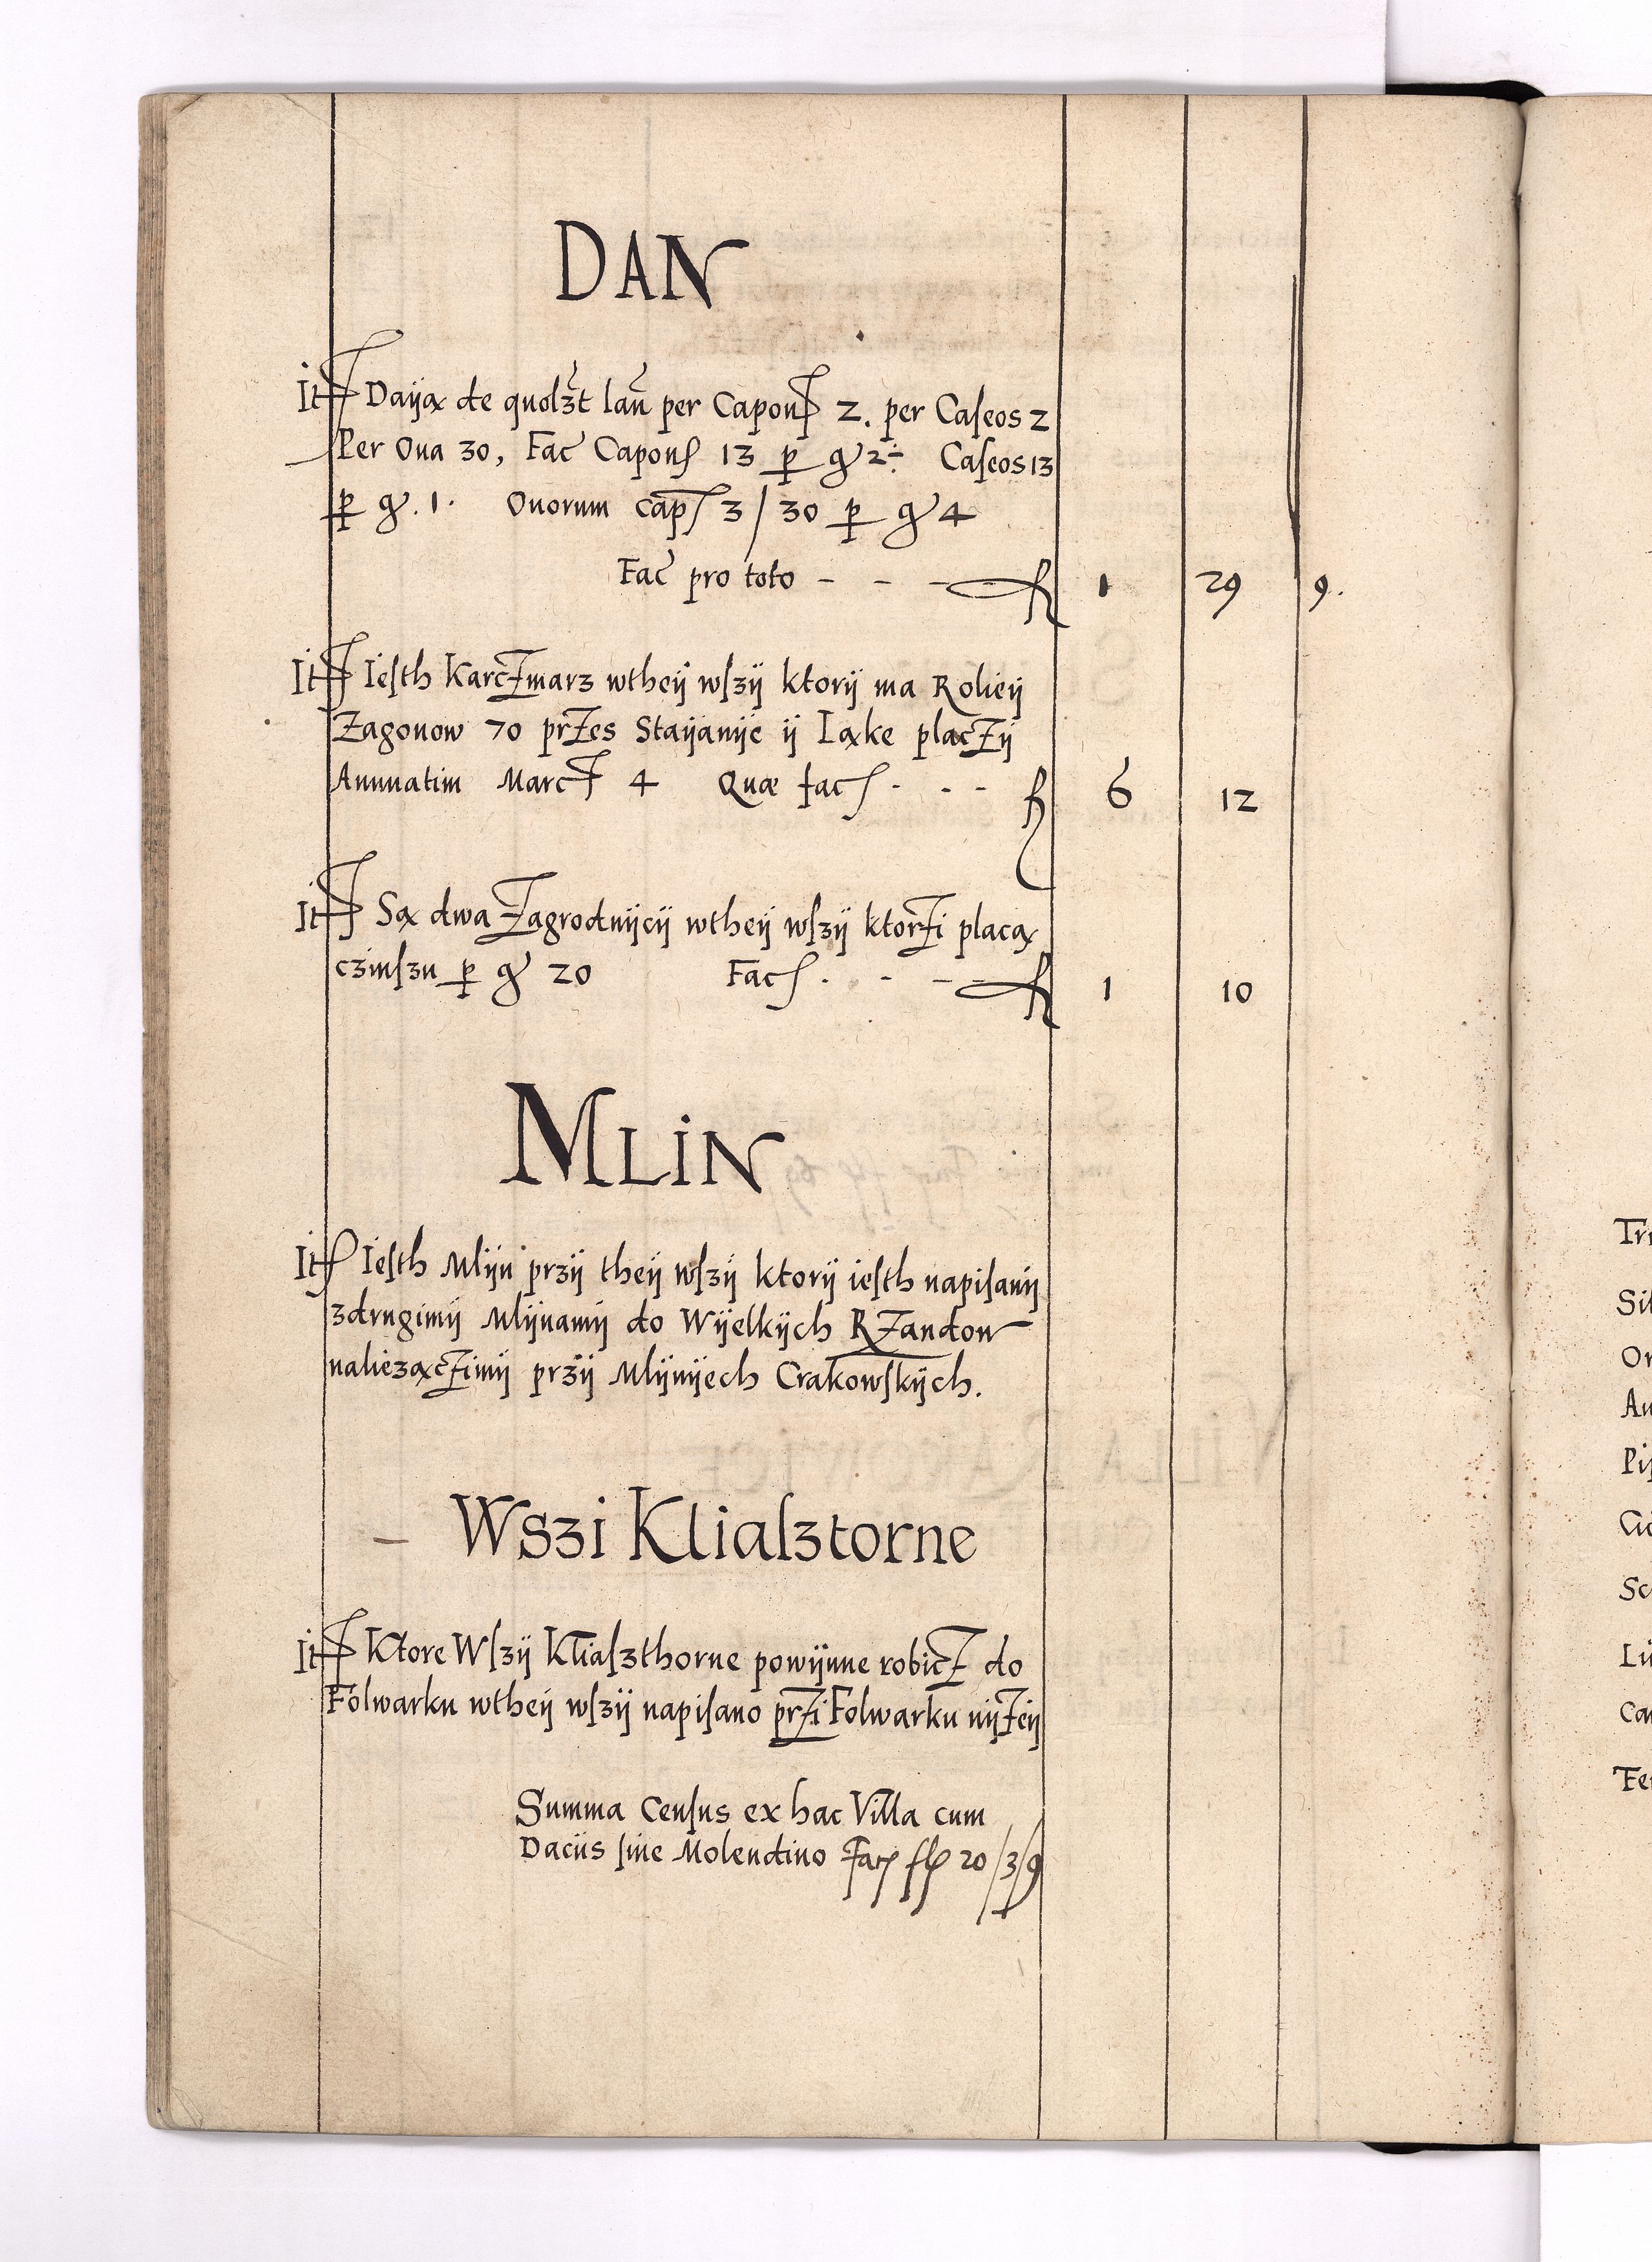 DAN
It Dayą de quolzt lan per Capon 2. per Caseos 2
Per Oua 30, Fac Capon 13 p g 2÷ Caseos 13
p g. 1. Ouorum cap 3/30 p g 4
Fac pro toto - - - fl 1 29 9.
It Iesth Karczmarz wtheÿ wszÿ ktorÿ ma Rolieÿ
Zagonow 70 przes Staÿanÿe ÿ Ląke placzÿ
Annuatim Marc 4 Quæ fac - - - fl 6 12
It Są dwa Zagrodnÿcÿ wtheÿ wszÿ ktorzi placą
czinszu p g 20 Fac - - - fl 1 10
MLIN
It Iesth Mlÿn przÿ theÿ wszÿ ktorÿ iesth napisanÿ
zdrugimÿ Mlÿnamÿ do Wÿelkÿch Rzandow
naliezączimÿ przÿ Mlÿnÿech Crakowskÿch.
Wszi Klialsztorne
It Ktore Wszÿ Kliaszthorne powÿnne robicz do
Folwarku wtheÿ wszÿ napisano przi Folwarku nÿzeÿ
Summa Census ex hac Villa cum
Daciis sine Molendino Fac fl 20/3/9